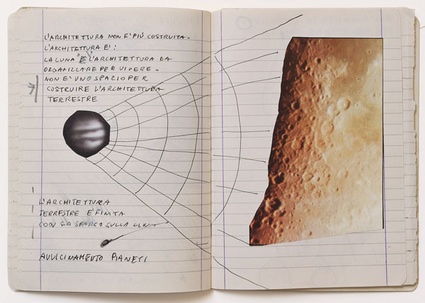 L'ARCHITETTURA NON E' PIÙ COSTRUITA.
L'ARCHITETTURA E':
LA LUNA È L'ARCHITETTURA DA
PER VIVERE.
NON E' UNO SPAZIO PER
COSTRUIRE L'ARCHITETTURA
TERRESTRE
L'ARCHITETTURA
TERRESTRE È FINITA
CON SULLA
AVVICINAMENTO PIANETI